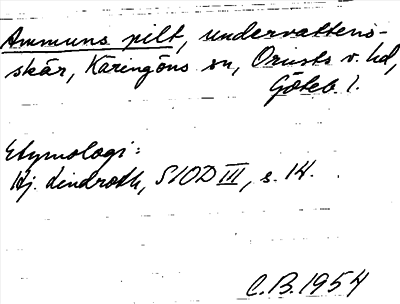 Ammuns pilt, undervattens-
skär, Käringöns sn, Orusts v. hd,
Göteb l.
Etymologi:
Hj. Lindroth, SIOD III, s. 14.
C.B. 1954